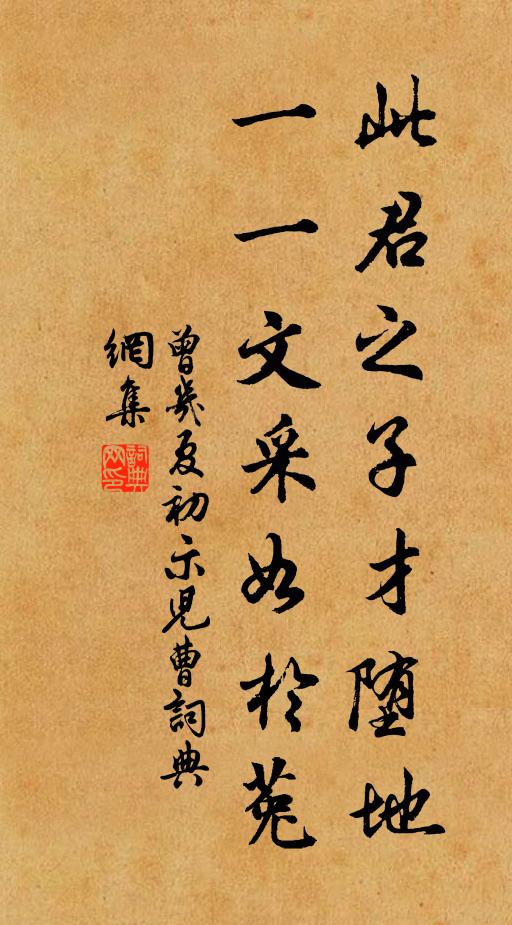 此君之子才堕地
一一文采如於菟
曾几夏初示児曹詞典
網集
詞典
网印